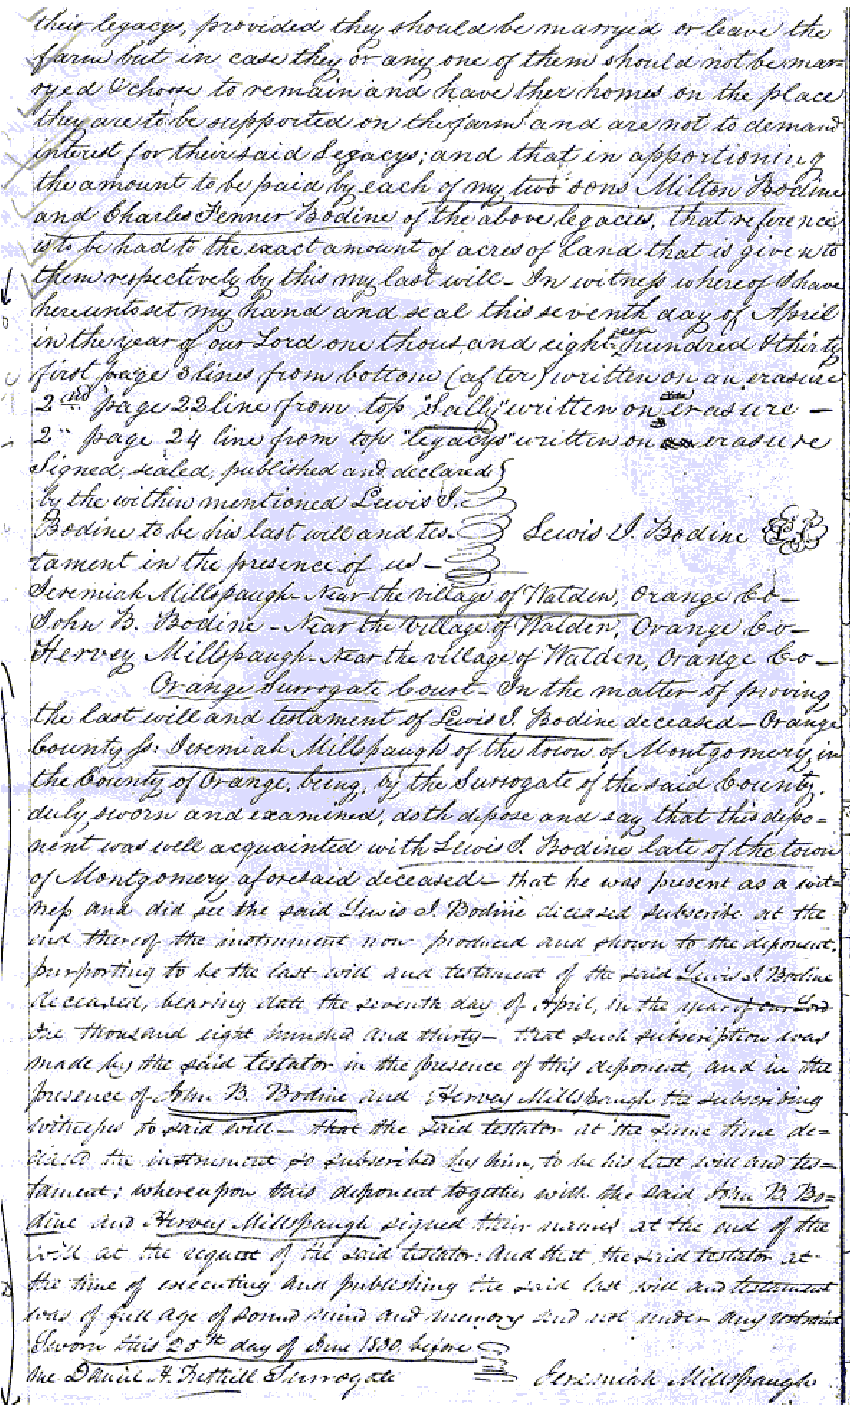 their legacys, provided they should be marryed or leave the
farm but in case they or any one of them should not be mar=
ryed & chose to remain and have ther homes on the place
they are to be supported on the farm and are not to demand
interest for their said Legacys; and that in apportioning
the amount to be paid by each of my two sons Milton Bodine
and Charles Fenner Bodine of the above legacies, that reference
is to be had to the exact amount of acres of Land that is given to
them respectively by this my last will - In witness whereof I have
hereunto set my hand and seal this seventh day of April
in the year of our Lord one thousand eight hundred & thirty
first page 3 lines from bottom (after) written on an erasure
2nd page 22 line from top "Sally" written on erasure -
2" page 24 line from top "legacys" written on erasure
Signed, sealed, published and declared
by the within mentioned Lewis I.
Bodine to be his last will and tes-
tament in the presence of us -
Lewis I. Bodine L.S.
Jeremiah Millspaugh - Near the village of Walden, Orange Co -
John B. Bodine - Near the village of Walden, Orange Co -
Hervey Millspaugh - Near the village of Walden, Orange Co -
Orange Surrogate Court - In the matter of proving
the last will and testament of Lewis I. Bodine deceased - Orange
County ss: Jeremiah Millspaugh of the town of Montgomery, in
the County of Orange, being, by the Surrogate of the said County,
duly sworn and examined, doth depose and say that this depo-
nent was well acquainted with Lewis I. Bodine late of the town
of Montgomery aforesaid deceased - that he was present as a wit-
ness and did see the said Lewis I Bodine deceased subscribe at the
end thereof the instrument now produced and shown to the deponent,
purporting to be the last will and testament of the said Lewis I Bodine
deceased, bearing date the seventh day of April, in the year of our Lord
One thousand eight hundred and thirty - that such subscription was
made by the said testator in the presence of this deponent, and in the
presence of John B. Bodine and Hervey Millspaugh the subscribing
witnesses to said will - that the said testator at the same time de=
clared the instrument so subscribed by him, to be his last will and tes-
tament: whereupon this deponent together with the said John B Bo=
dine and Hervey Millspaugh signed their names at the end of the
will at the request of the said testator: And that the said testator at
the time of executing and publishing the said last will and testament
was of full age of sound mind and memory and not under any restraint
Sworn this 25th day of June 1830, before
me Daniel H. Tuthill Surrogate
Jeremiah Millspaugh